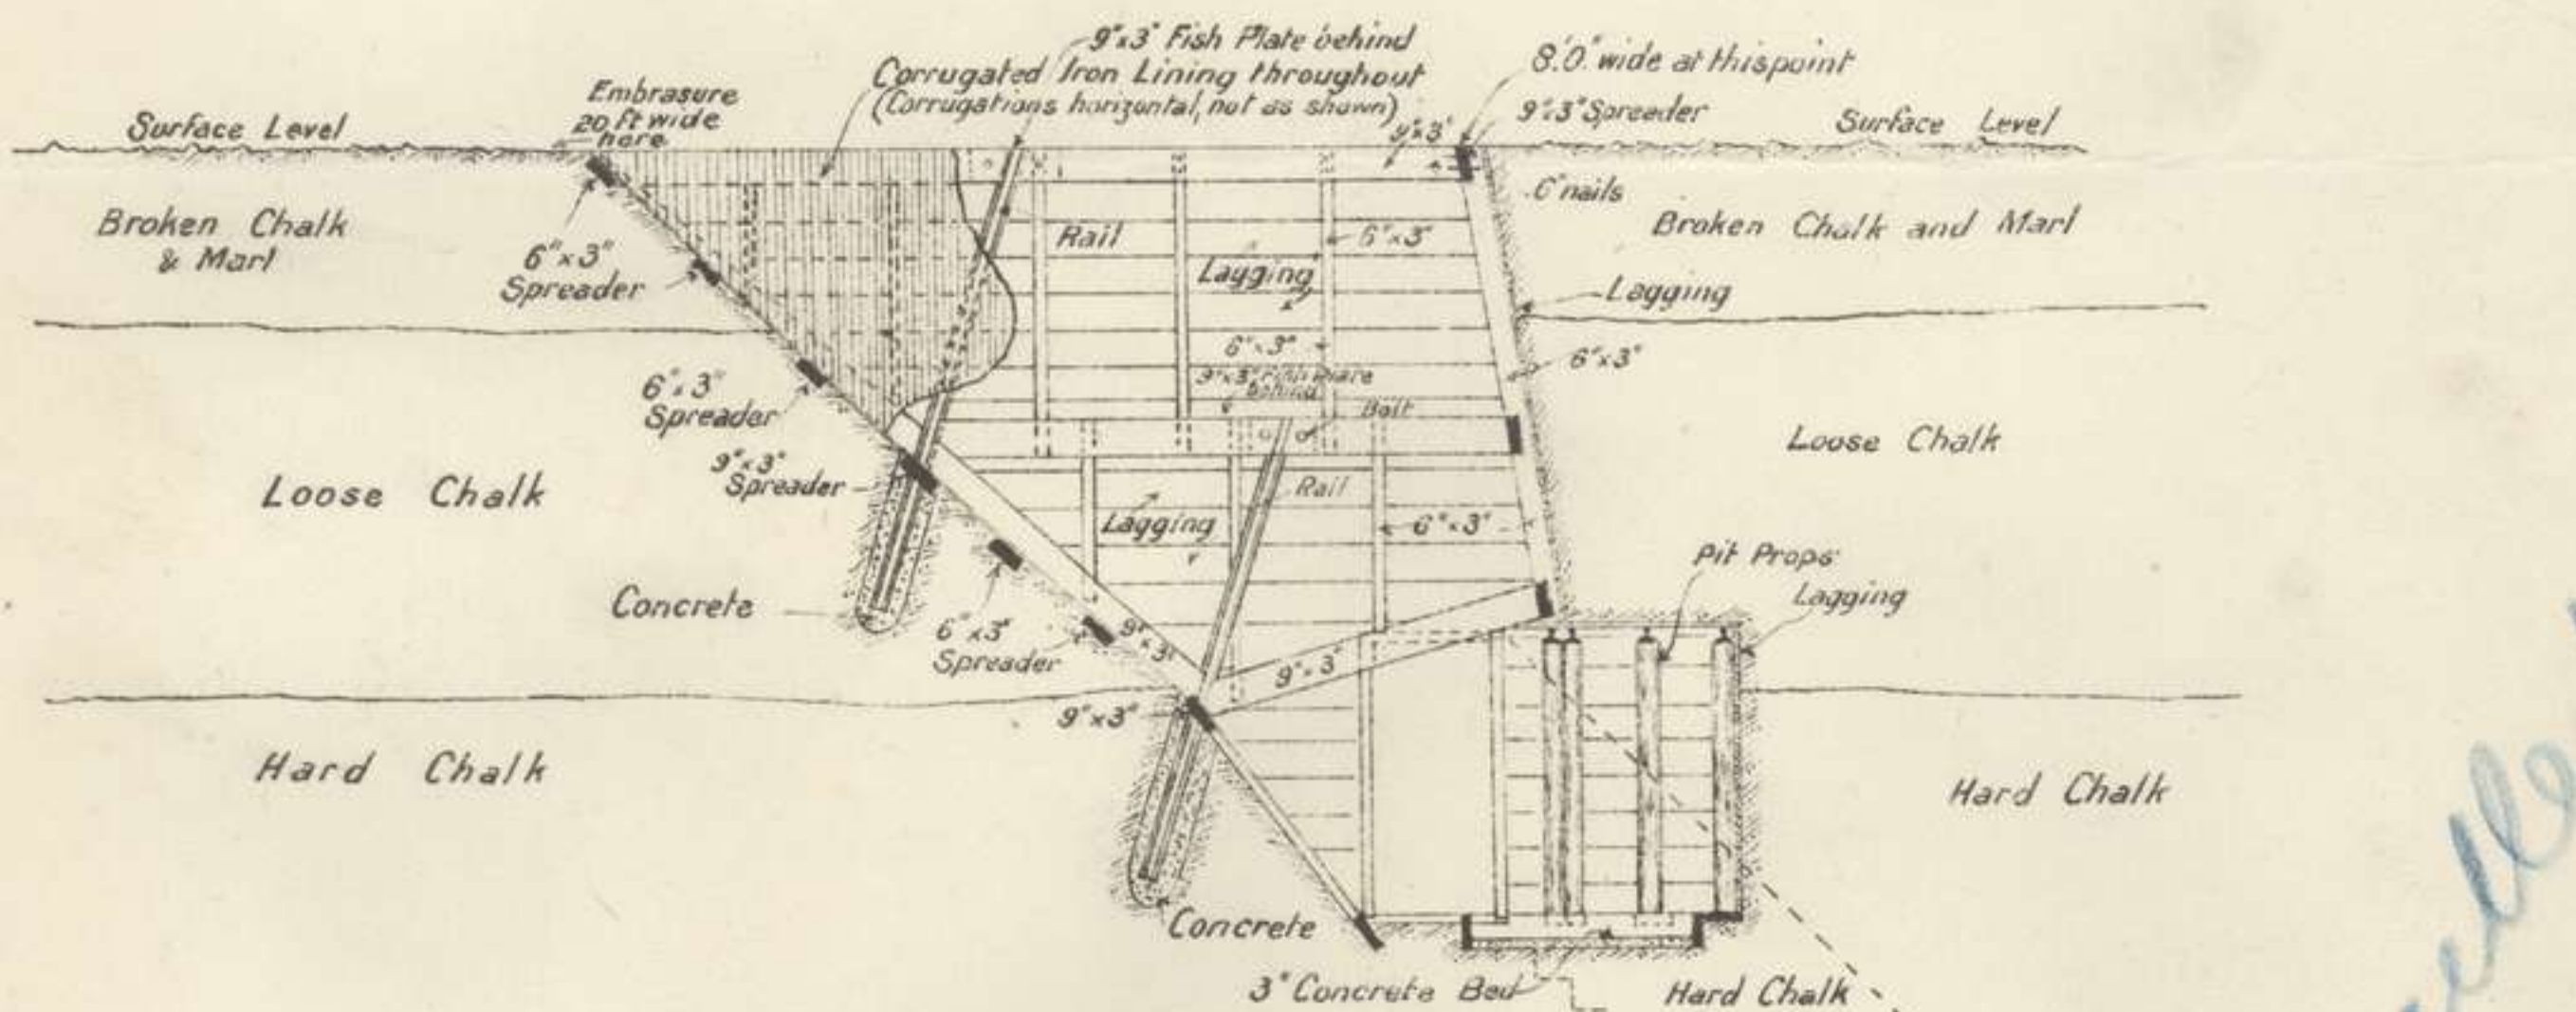 9"x3" Fish Plate behind
Corrugated Iron Lining throughout
(Corrugations horizontal, not as shown)
8'.0" wide at this point
9"x3" Spreader
Embrasure
20 ft wide
here
Surface Level
9"x3"
Surface Level
6" nails
Broken Chalk
& Marl
Broken Chalk and Marl
6"x3"
Spreader
Rail
6"x3"
Lagging
Lagging
6"x3"
6"x3"
9"x3" Fish Plate
behind
Bolt
6"x3"
Spreader
Loose Chalk
9"x3"
Spreader
Loose Chalk
Rail
Lagging
6"x3"
Pit Props
Lagging
Concrete
6"x3"
Spreader
9"x3"
9"x3"
9"x3"
Hard Chalk
Hard Chalk
Concrete
3" Concrete Bed
Hard Chalk